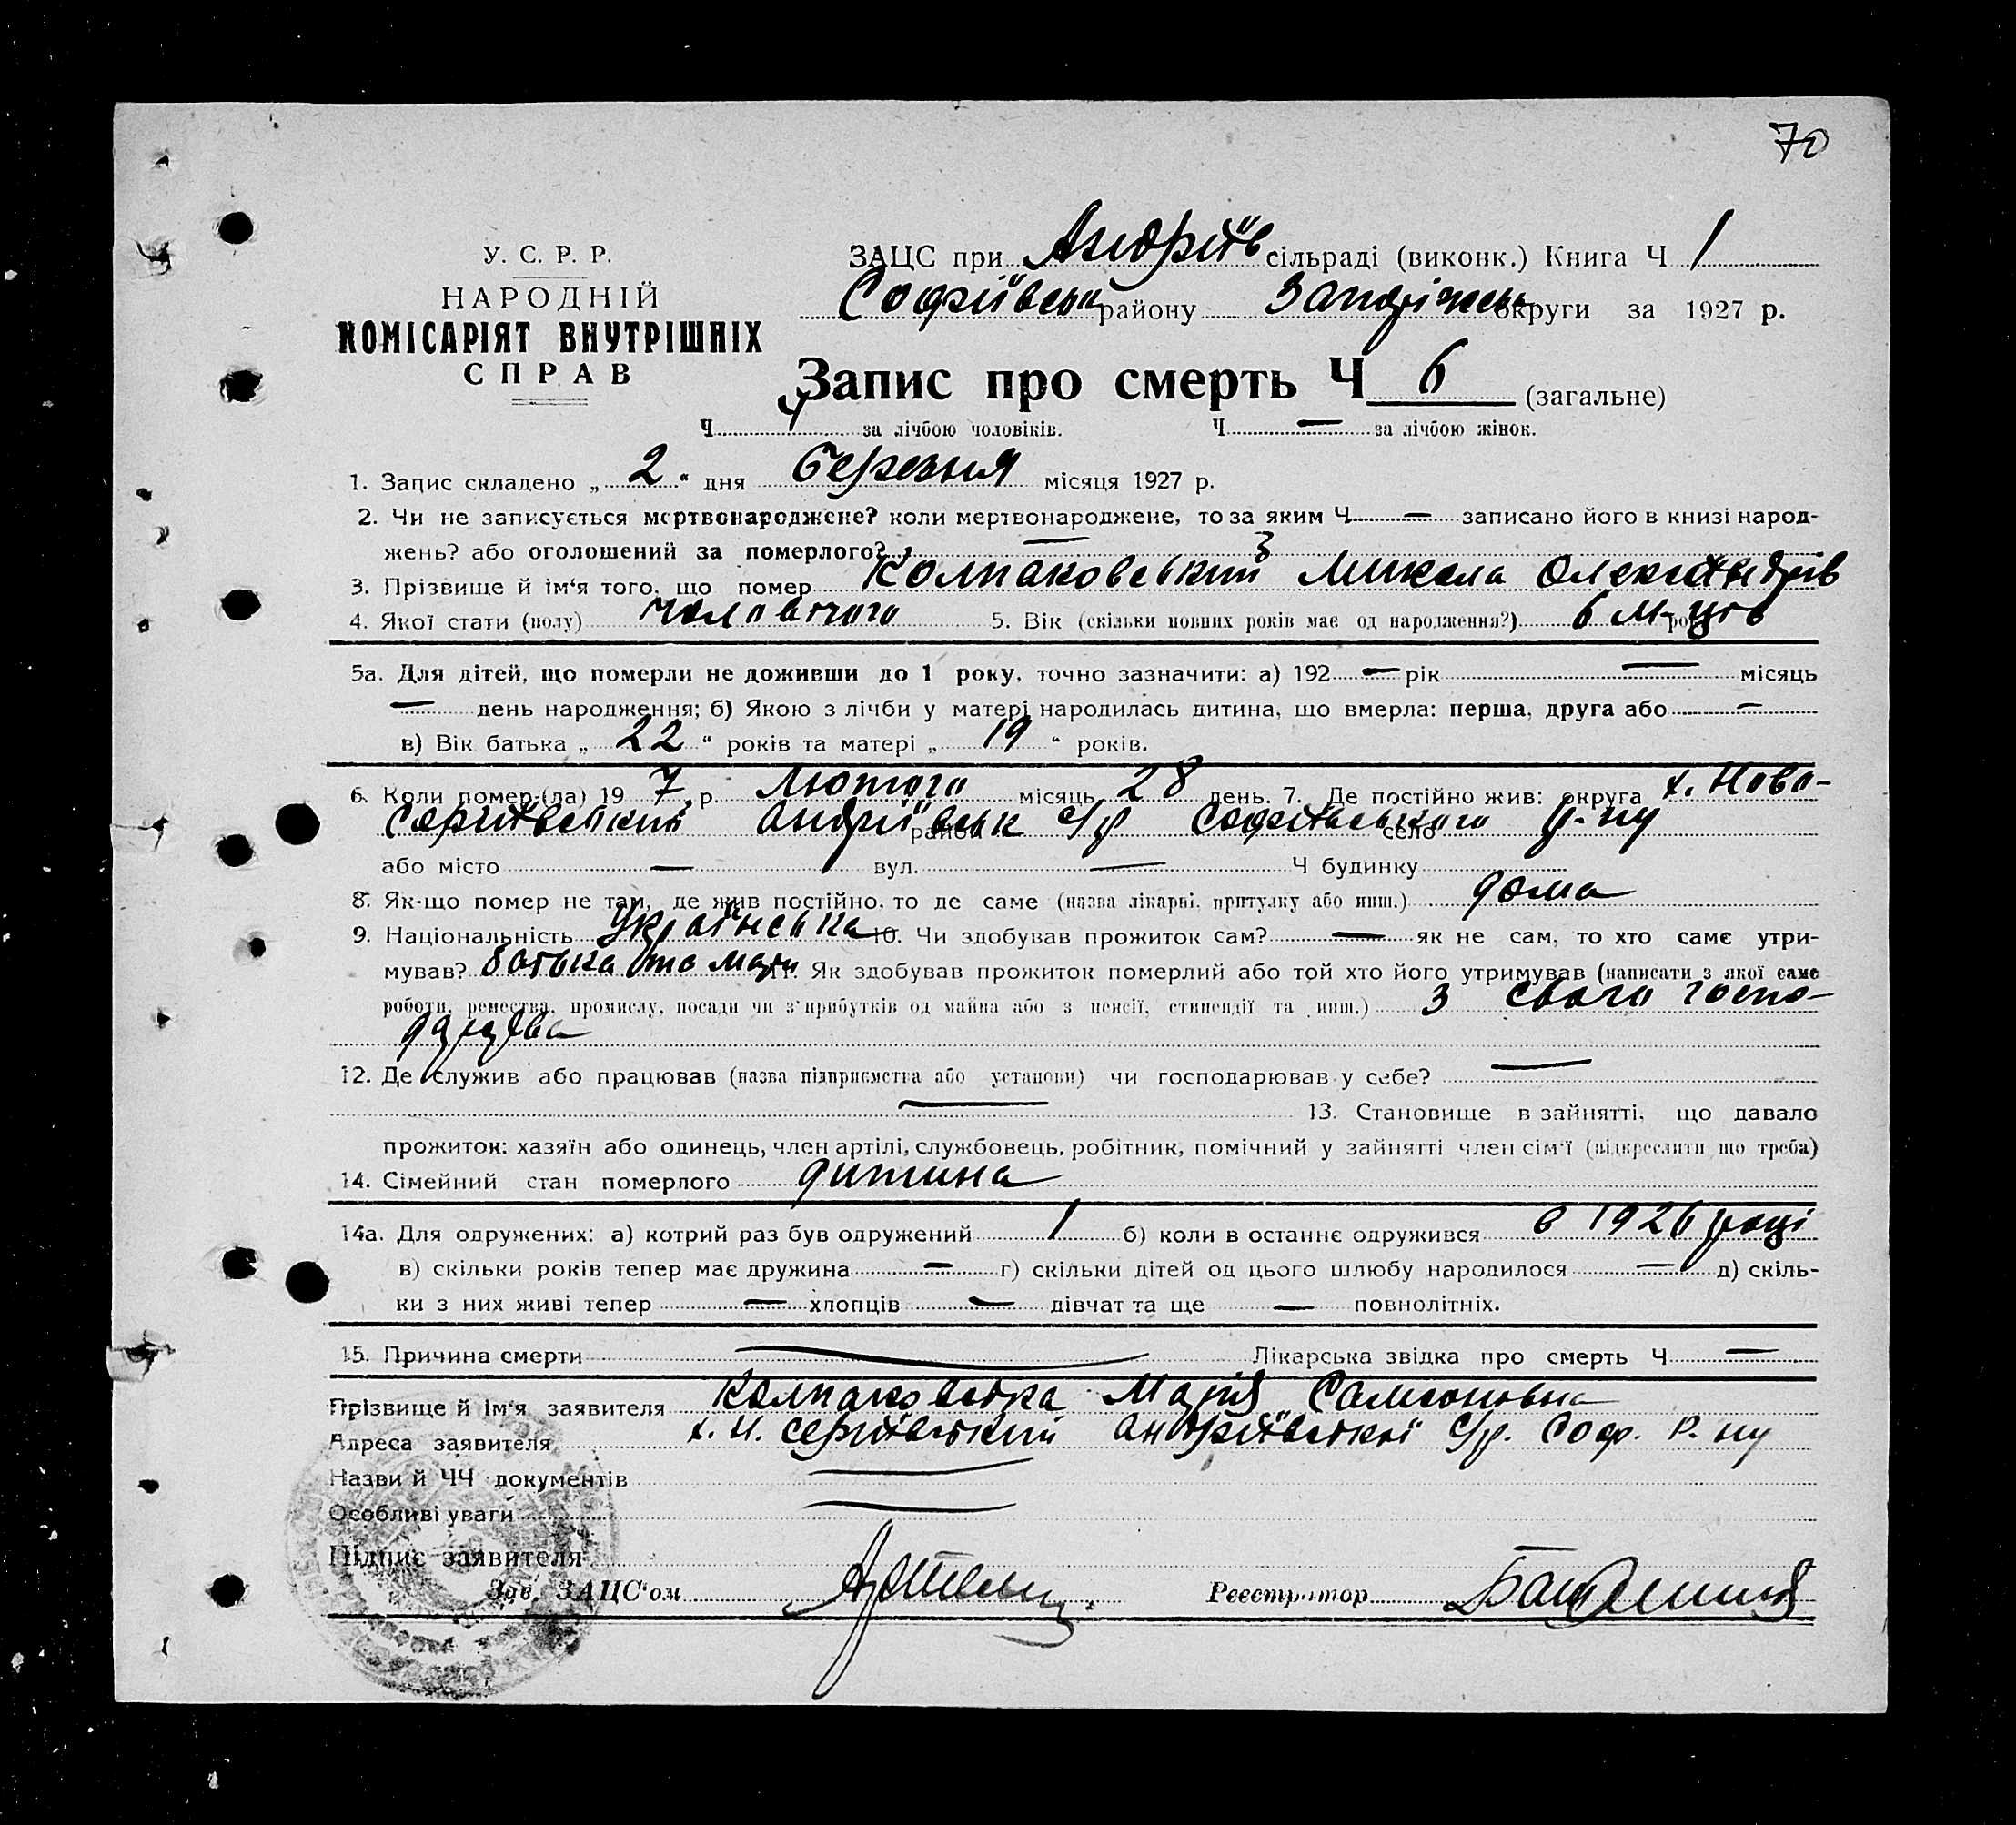 70
У. С. Р. Р.
НАРОДНІЙ
КОМІСАРІЯТ ВНУТРІШНІХ
СПРАВ
ЗАЦС при Андріїв сільраді (виконк.) Книга Ч 1
Софіївськ району Запоріжськ округи за 1927 р.
Запис про смерть Ч 6 (загальне)
Ч 4 за лічбою чоловіків. Ч — за лічбою жінок.
1. Запис складено „ 2 “ дня березня місяця 1927 р.
2. Чи не записується мертвонароджене? коли мертвонароджене, то за яким Ч — записано його в книзі народ-
жень? або оголошений за померлого? —
3. Прізвище й ім‘я того, що помер Колпаковський Микола Олександрів
4. Якої стати (полу) чоловічого 5. Вік (скільки повних років має од народження?) 6 м-ців
5а. Для дітей, що померли не доживши до 1 року, точно зазначити: а) 192 — рік — місяць
— день народження; б) Якою з лічби у матері народилась дитина, що вмерла: перша, друга або —
в) Вік батька „ 22 “ років та матері „ 19 “ років.
6. Коли помер (ла) 19 7 р. Лютого місяць 28 день. 7. Де постійно жив: округа х. Ново-
Сергіївський Андріївськ район с/р Софіївського село р-ну
або місто — вул. — Ч будинку
8. Як-що помер не там, де жив постійно, то де саме (назва лікарні, притулку або инш.) дома
9. Національність Українська 10. Чи здобував прожиток сам? — як не сам, то хто саме утри-
мував? батька та мати 11. Як здобував прожиток померлий або той хто його утримував (написати з якої саме
роботи, ремества, промислу, посади чи з‘прибутків од майна або з пенсії, стипендії та инш.) З свого госпо-
дарства
12. Де служив або працював (назва підприємства або установи) чи господарював у себе? —
— 13. Становище в зайнятті, що давало
прожиток: хазяїн або одинець, член артілі, службовець, робітник, помічний у зайнятті член сім‘ї (підкреслити що треба)
14. Сімейний стан померлого дитина
14а. Для одружених: а) котрий раз був одружений 1 б) коли в останнє одружився в 1926 році
в) скільки років тепер має дружина — г) скільки дітей од цього шлюбу народилося — д) скіль-
ки з них живі тепер — хлопців — дівчат та ще — повнолітніх.
15. Причина смерти — Лікарська звідка про смерть Ч —
Прізвище й ім‘я заявителя Колпаковська Марія Самсоновна
Адреса заявителя х. Н. Сергіївський Андріївської с/р. Соф. р. ну
Назви й ЧЧ документів —
Особливі уваги —
Підпис заявителя
Зав. ЗАЦС‘ом Реєстратор